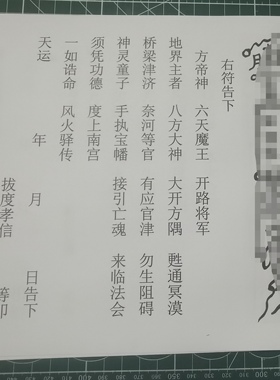 右符告下
方帝神 六天魔王 开路将军
地界主者 八方大神 大开方隅 甦通冥漠
桥梁津济 奈河等官 有应官津 勿生阻碍
神灵童子 手执宝幡 接引亡魂 来临法会
须凭功德 度上南宫
一如诰命 风火驿传
天运 年 月 日告下
拔度孝信 等叩